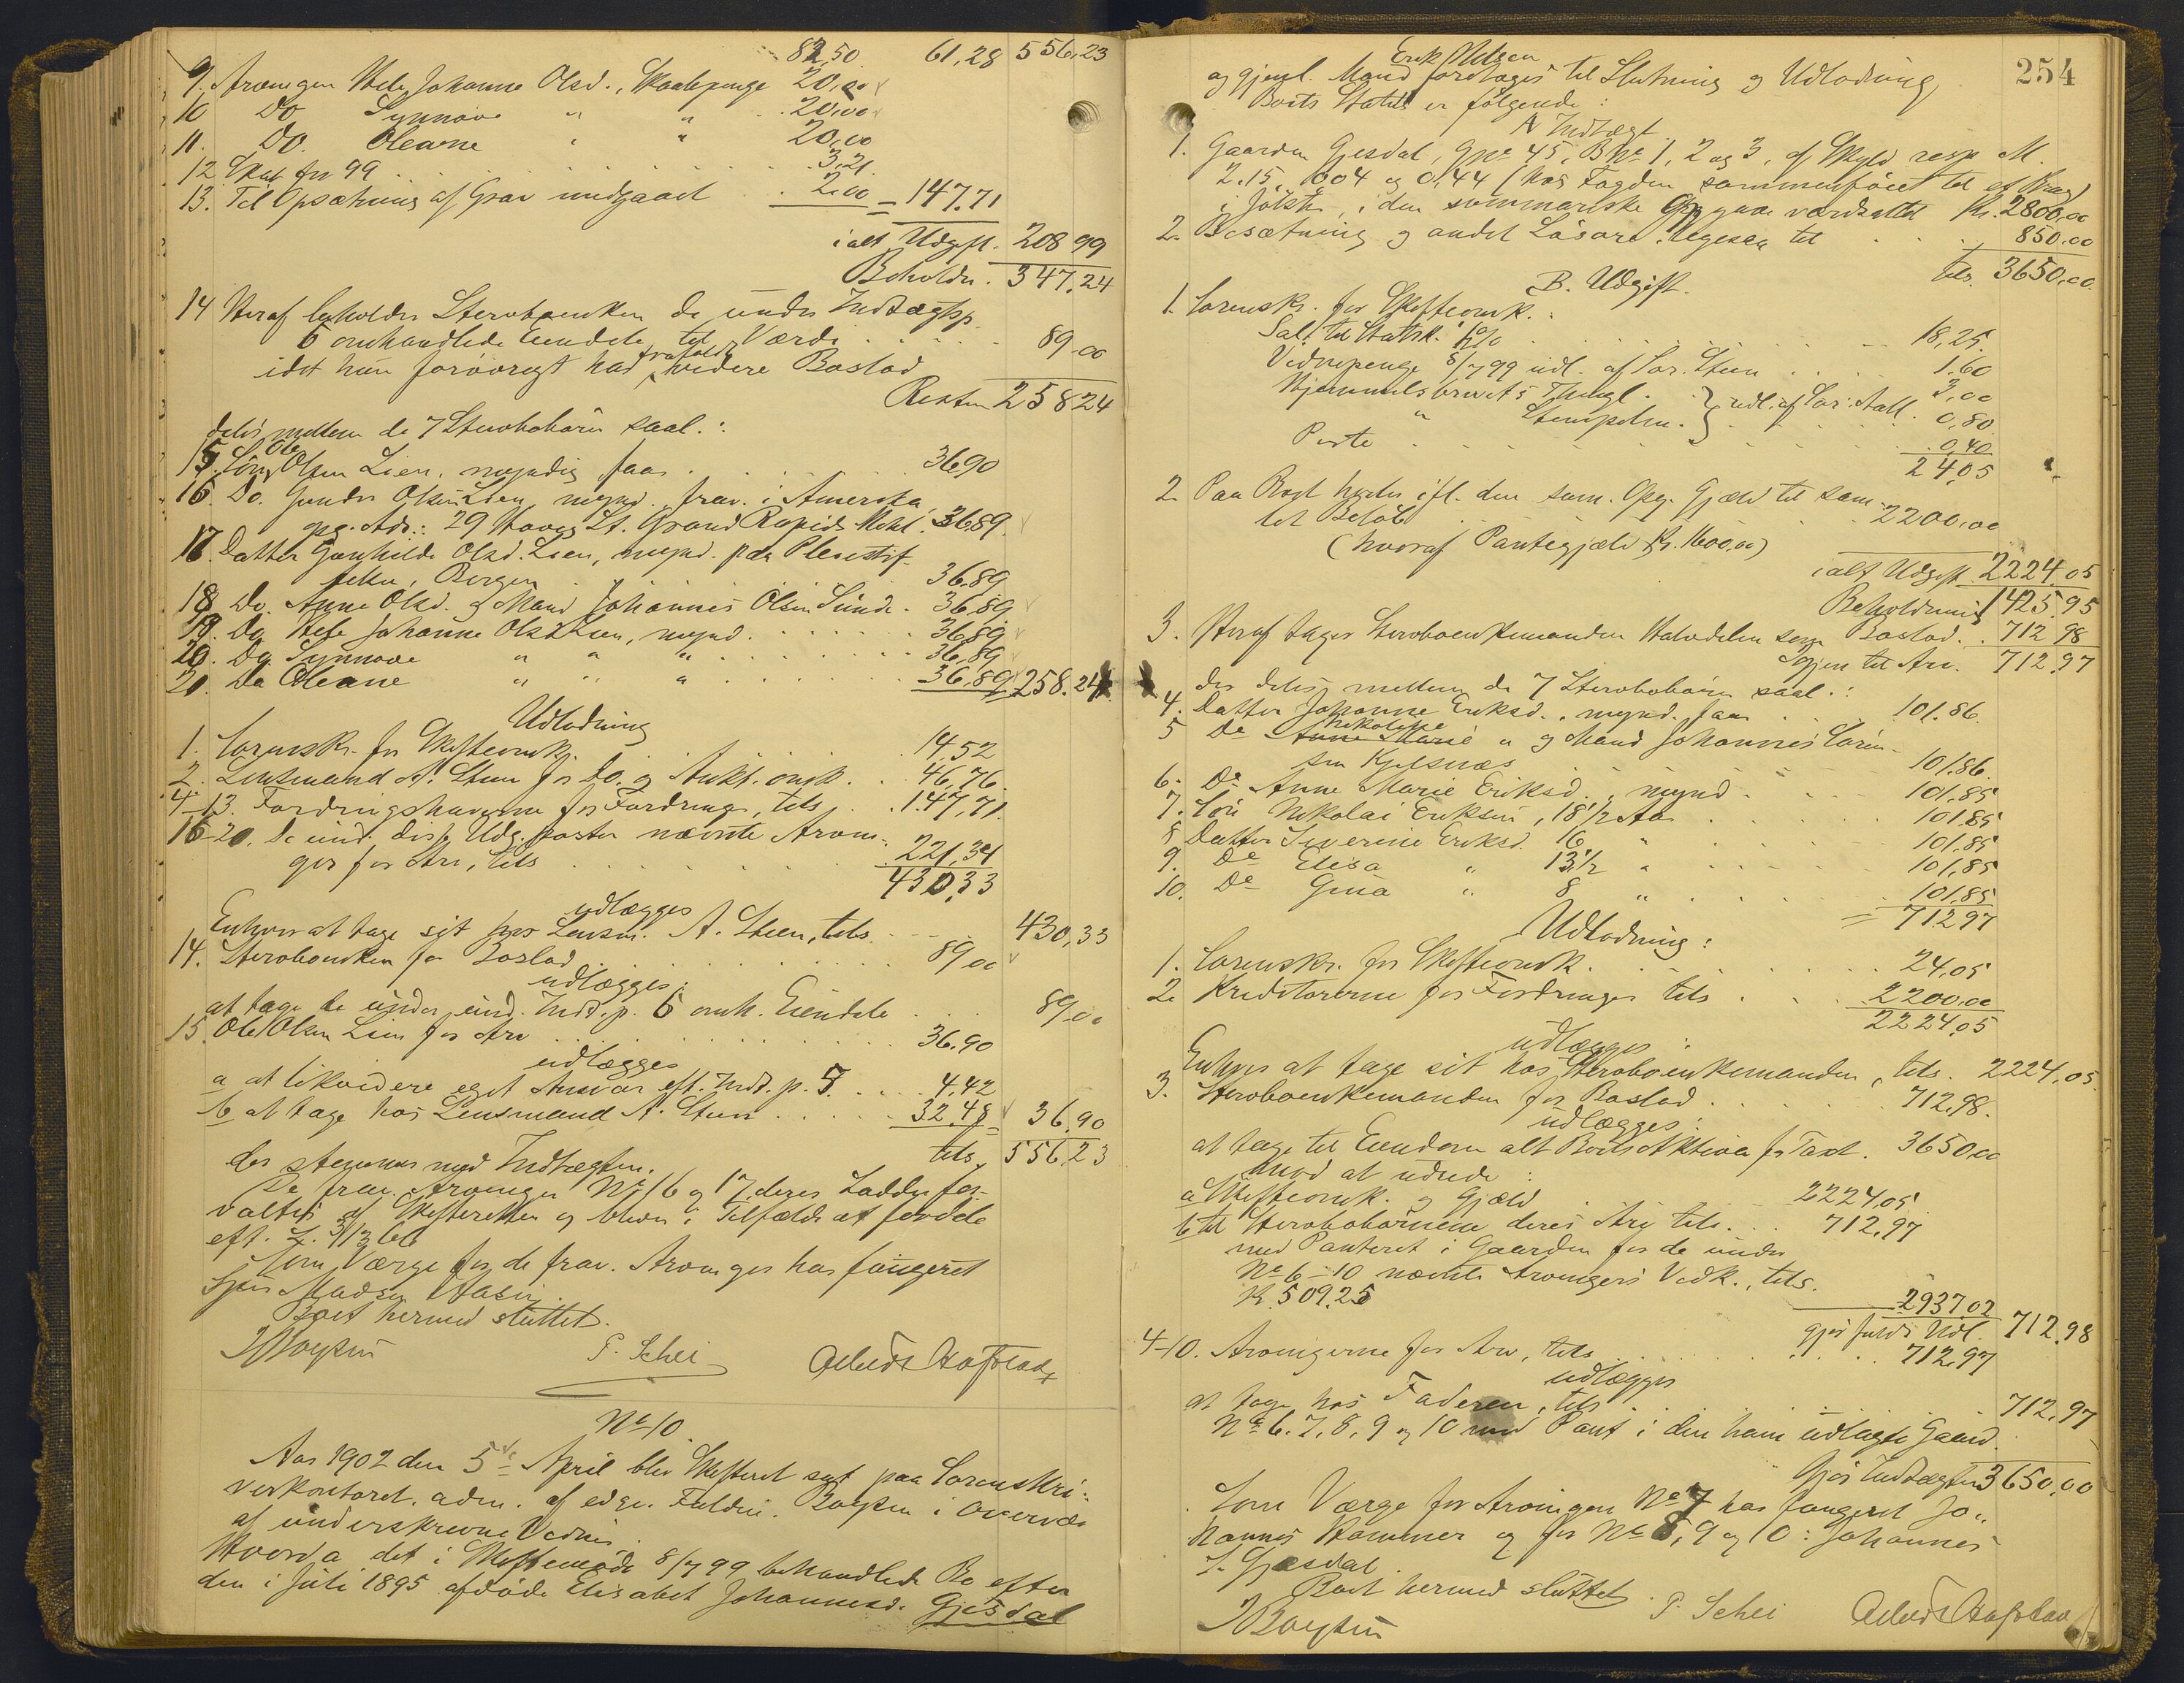 82,50 61,28 556,23
9. Arvingen Hele Johanne Olsd., Skaalepenge 20,00
10 Do Synnøve " " 20,00
11. Do. Oleane " " 20,00
12 Skat for 99 3,21
13. Til Opsætning af Grav medgaaet 2,00 = 147.71
ialt Udgift. 208 99
Beholdn. 347.24
14 Heraf beholder Sterboenken de under Indtægtsp.
6 omhandlede Eiendele til Værdi 89,00
idet hun forøvrigt har frafaldt videre Boslod
Resten 258 24
deles mellem de 7 Sterbobørn saal.:
15. Søn Ole Olsen Lien, myndig faar 36,90
16. Do. Gunder Olsen Lien mynd. frav. i Amerika
opg. Adr.: 29 Hoves St. Grand Rapids Mchl. 36,89
17. Datter Gunhilde Olsd. Lien, mynd. paa Pleiestif-
telsen, Bergen 36,89
18 Do. Anne Olsd. g Mand Johannes Olsen Sunde. 36,89
19. Do Hele Johanne Olsd Lien, mynd. 36,89
20. Do Synnøve " " " 36,89
21. Do Oleane " " " 36,89 258.24
Udlodning
1. Sorenskr. for Skifteomk. 14,52
2. Lensmand A. Steen for Do. og Aukt. omk. 46,76
4-13. Fordringshaverne for Fordringer, tils. 147,71
16-20. De und. disse Udg. poster nævnte Arvin-
ger for Arv, tils 221,34
430,33
udlægges
Enhver at tage sit hos Lensm. A. Steen, tils. 430,33
14. Sterboenken for Boslod 89,00
udlægges:
at tage de under und. Indt. p. 6 omh. Eiendele 89,00
15. Ole Olsen Lien for Arv 36.90
udlægges
a at likvidere eget Ansvar eft. Indt. p. 7. 4,42
b at tage hos Lensmand A. Steen 32,48 = 36,90
der stemmer med Indtægten. tils. 556,23
De frav. Arvinger No 16 og 17 deres Lodder for-
valtes af Skifteretten og bliver i Tilfælde at fordele
eft. L. 3/13 66
Som Værge for de frav. Arvinger har fungeret
Madsen Aasen.
Boet hermed sluttet.
J Boysen P. Schei Hafstad
No 10.
Aar 1902 den 5te April blev Skifteret sat paa Sorenskri-
verkontoret, adm. af edsv. Fuldm. Boysen i Overvær
af underskrevne Vidner.
Hvorda det i Skiftemøde 8/7 99 behandlede Bo efter
den i Juli 1895 afdøde Elisabet Johannesd. Gjesdal
254
Erik Nilsen
og gjenl. Mand foretages til Slutning og Udlodning
Boets Status er følgende:
A Indtægt
1. Gaarden Gjesdal, Gno 45, Bno 1, 2 og 3, af Skyld resp. M.
2.15, 0.04 og 0,44 (hos Fogden sammenføiet til et Brug)
i Jølster, i den summariske Opgave værdsattet Kr. 2800,00
2. Besætning og andet Løsøre. Ligesaa til 850,00
tils. 3650,00
B. Udgift.
1. Sorenskr. for Skifteomk.:
Sal. til Statsk. ½% 18,25
Vidnepenge 8/7 99 udl. af Lar. Steen 1,60
Hjemmelsbrevets Thingl. } udl. af Sor. Stall. 3,00
" Stempelm. 0,80
Porto 0,40
24,05
2. Paa Boet hviler ifl. den sum. Opg. Gjæld til sam-
let Beløb 2200,00
(hvoraf Pantegjæld Kr. 1600,00)
ialt Udgift 2224,05
Beholdning 1425,95
3. Heraf tager Sterboenkemanden Halvdelen som Boslod. 712 98
Igjen til Arv. 712,97
der deles mellem de 7 Sterbobørn saal.:
4. Datter Johanne Eriksd., mynd. faar 101.86
5 Do Nikoline " g Mand Johannes Søren-
sen Kjøsnæs 101,86
6. Do Anne Marie Eriksd., mynd. 101,85
7. Søn Nikolai Eriksen, 18½ Aar 101,85
8 Datter Severine Eriksd. 16 " 101,85
9. Do Elisa " 13½ " 101,85
10. Do Gina " 8 " 101,85
= 712,97
Udlodning:
1. Sorenskr. for Skifteomk. 24,05
2. Kreditorerne for Fordringer tils 2200,00
2224,05
udlægges:
Enhver at tage sit hos Sterboenkemanden, tils. 2224,05
3. Sterboenkemanden for Boslod 712,98.
udlægges:
at tage til Eiendom alt Boets Aktiva for Taxt. 3650,00
mod at udrede:
a Skifteomk. og Gjæld 2224,05
b til Sterbobørnene deres Arv tils. 712,97
med Panteret i Gaarden for de under
No 6-10 nævnte Arvingers Vedk., tils.
K. 509,25
2937,02
gjør fuldt Udl. 712,98
4-10. Arvingerne for Arv, tils 712,97
udlægges
at tage hos Faderen, tils 712,97
No 6, 7, 8, 9 og 10 mod Pant i den ham udlagte Gaard.
Gjør Indtægten 3650,00
Som Værge for Arvingen No 7 har fungeret Jo-
hannes Hammer og for No 8, 9 og 10: Johannes
S. Gjesdal.
Boet hermed sluttet.
J Boysen P. Schei Hafstad